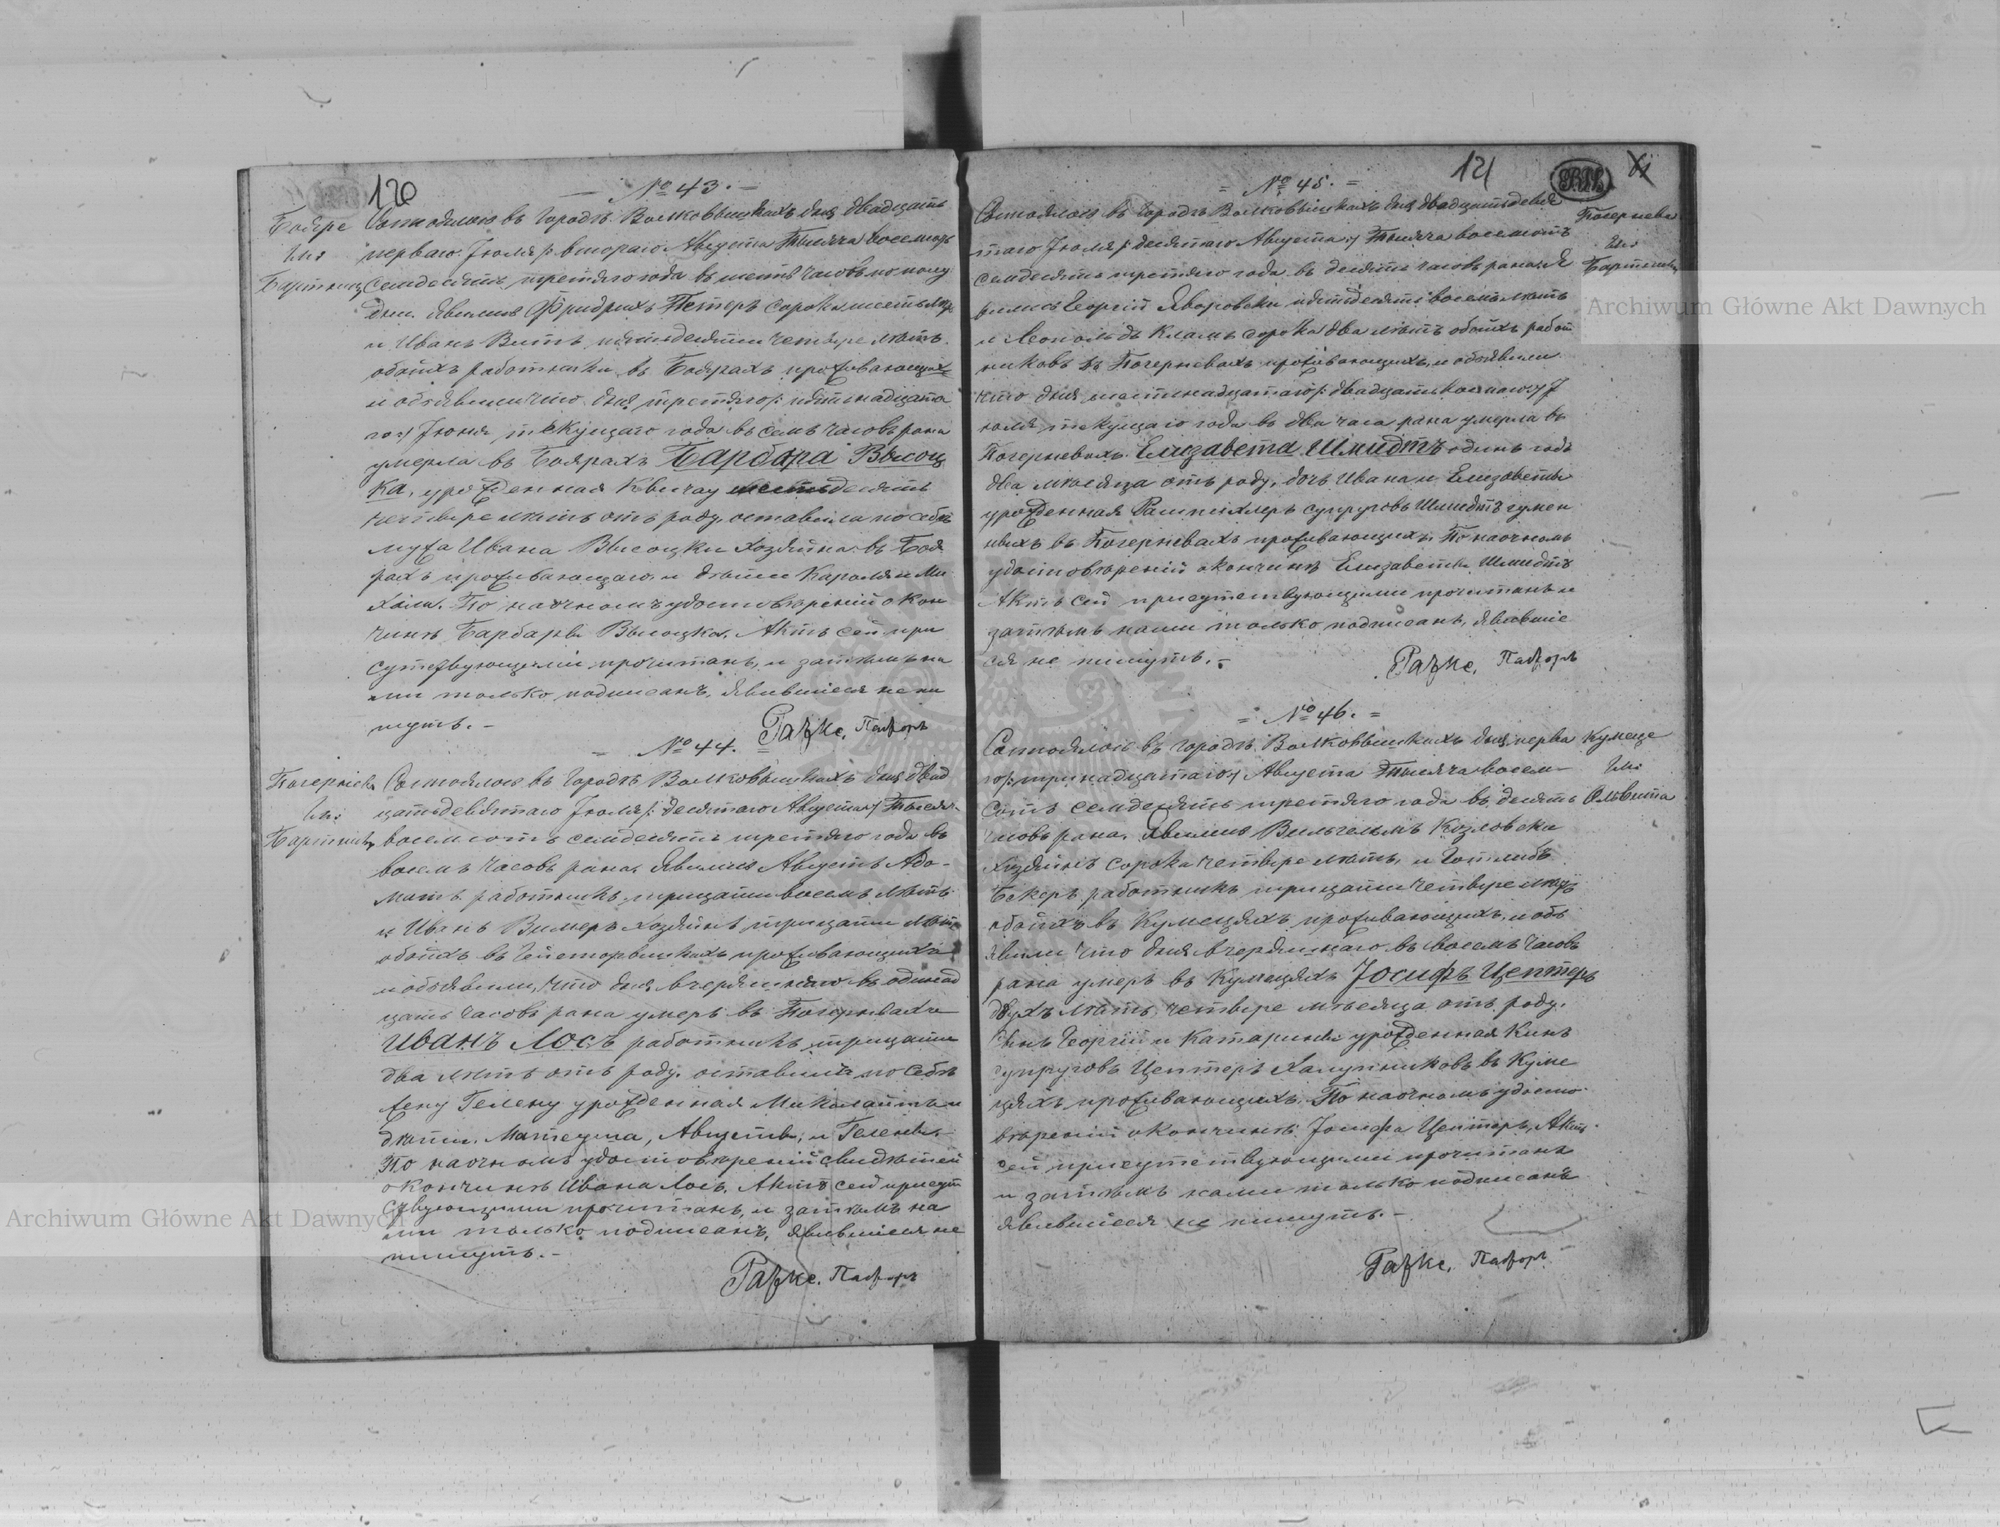 120
№ 43.
Бояре
Гм:
Бартники
Состоялось въ городѣ Волковышкахъ дня двадцать
перваго Іюля /: втораго Августа тысяча восемьсотъ
семдесятъ третяго года въ шесть часовъ по полу
дни. Явились Фридрихъ Петеръ сорока шесть лѣтъ
и Иванъ Витъ пятидесяти четыре лѣтъ
обоихъ работники въ Боярахъ проживающихъ
и объявили что дня третяго /: пятнадцата
го :/ Іюня текущаго года въ семь часовъ рана
умерла въ Боярахъ Барбара Высоц
ка, урожденная шестьдесятъ
четыре лѣтъ отъ роду, оставила по себѣ
мужа Ивана Высоцки хозяина въ Боя
рахъ проживающаго и дѣти Кароля и Ми
халя. По наочномъ удостовѣреній о кон
чинѣ Барбары Высоцка, Актъ сей при
сутствующимъ прочитанъ, и затѣмъ на
ми только подписанъ, явившіеся не пи
шутъ. –
Пасторъ
№ 44.
Гм:
Состоялось въ городѣ Волковышкахъ дня двад
цать девятаго Іюля /: десятаго Августа :/ тысяча
восемсотъ семдесятъ третяго года въ
восемь часовъ рана, Явились Августъ Адо-
матъ работникъ, трицати восемь лѣтъ
и Иванъ Вимеръ хозяинъ трицати лѣтъ
обоихъ въ проживающихъ
и объявили, что дня вчерашняго въ одинад
цать часовъ рана умеръ въ Погерневахъ
Иванъ Лосъ работникъ, трицати
два лѣтъ отъ роду. оставилъ по себѣ
жену Гелену урожденная Миколайтъ и
дѣти. Матеуша, Августы, и Гелены.
По наочномъ удостовѣреній свидѣтей
о кончинѣ Ивана Лосъ, Актъ сей присут
ствующими прочитанъ, и затѣмъ на
ми только подписанъ, явившіеся не
пишутъ. –
Пасторъ
121
№ 45.
Погерневы
Гм:
Бартники
Состоялось въ городѣ Волковышкахъ дня двадцать девя
таго Іюля /: десятаго Августа :/ тысяча восемсотъ
семдесятъ третяго года въ десять часовъ рана. Я
вились Георгій Яворовски пятдесятъ восемь лѣтъ
и Леопольдъ Кламъ сорока два лѣтъ обоихъ работ
никовъ въ Погерневахъ проживающихъ, и объявили
что дня шестнадцатаго /: двадцать восмаго :/ І
юля текущаго года въ два часа рана умерла въ
Погерневахъ Елизавета Шмидтъ одинъ годъ
два мѣсяца отъ роду, дочь Ивана и Елизаветы
урожденная супруговъ Шмидтъ
въ Погерневахъ проживающихъ. По наочномъ
удостовѣреній о кончинѣ Елизаветы Шмидтъ
Актъ сей присутствующими прочитанъ и
затѣмъ нами только подписанъ, явившіе
ся не пишутъ. –
Пасторъ
№ 46.
Кумеце
Гм:
Ольвита
Состоялось въ городѣ Волковышкахъ дня перва
го /: тринадцатаго :/ Августа тысяча восем-
сотъ семдесятъ третяго года въ десять
часовъ рана. Явились Вильгельмъ Козловски
хозяинъ сорока четыре лѣтъ, и Готлибъ
Бекеръ работникъ трицати четыре лѣтъ
обоихъ въ Кумецяхъ проживающихъ, и объ
явили что дня вчерашняго въ восемь часовъ
рана умеръ въ Кумецяхъ Іосифъ Центеръ
двухъ лѣтъ, четыре мѣсяца отъ роду.
сынъ Георгій и Катарины урожденная Кинъ
супруговъ Центеръ халупниковъ въ Куме
цяхъ проживающихъ. По наочномъ удосто
вѣреній о кончинѣ Іосифа Центеръ, Актъ
сей присутствующими прочитанъ
и затѣмъ нами только подписанъ
явившіеся не пишутъ. –
Пасторъ
Archiwum Główne Akt Dawnych
Archiwum Główne Akt Dawnych